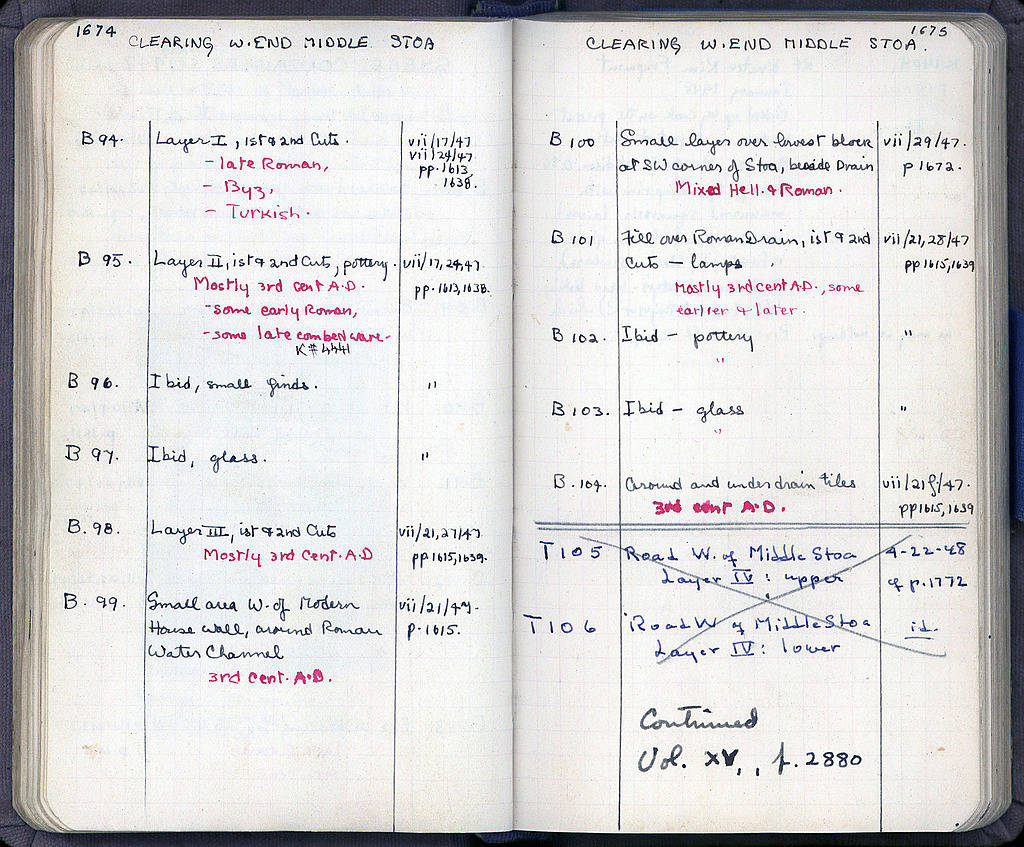 1674
CLEARING W. END MIDDLE STOA
B 94. Layer I, 1st & 2nd Cuts. vii/17/47
vii/24/47
- late Roman, pp. 1613,
- Byz, 1638.
- Turkish.
B 95. Layer II, 1st & 2nd Cuts, pottery. vii/17,24,47.
Mostly 3rd cent A.D. pp. 1613, 1638.
- some early Roman,
- some late combed ware -
K #4441
B 96. Ibid, small finds. "
B 97. Ibid, glass. "
B.98. Layer III, 1st & 2nd Cuts vii/21,27/47
Mostly 3rd Cent. A.D pp 1615, 1639.
B. 99. Small area W. of Modern vii/21/47.
House Wall, around Roman p. 1615.
Water Channel
3rd Cent. A.D.
1675
CLEARING W. END MIDDLE STOA.
B 100 Small layer over lowest block vii/29/47.
at SW corner of Stoa, beside Drain p 1672.
Mixed Hell. & Roman.
B 101 Fill over Roman Drain, 1st & 2nd vii/21,28/47
Cuts — lamps pp 1615, 1639
Mostly 3rd cent A.D., some
earlier & later.
B 102. Ibid - pottery "
"
B 103. Ibid - glass "
"
B. 104. Around and under drain tiles
3rd cent A.D. pp 1615, 1639
T 105 Road W. of Middle Stoa 4-22-48
Layer IV : upper cf p. 1772
T 106 Road W. of Middle Stoa id.
Layer IV : lower
Continued
Vol. XV, , p. 2880